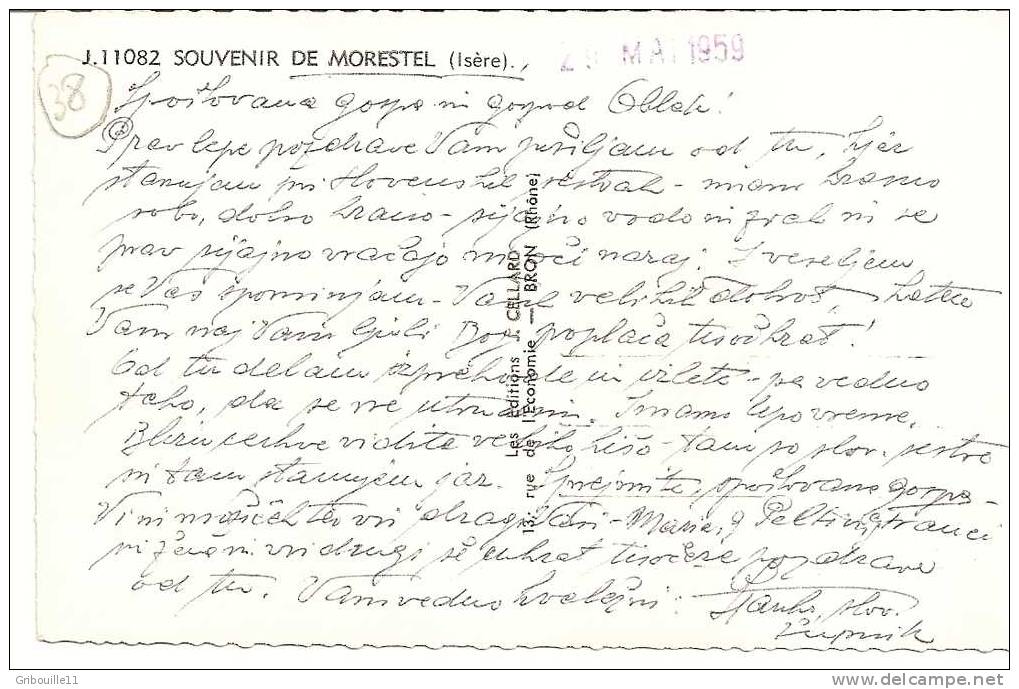 J.11082 SOUVENIR DE MORESTEL (Isère).,
29 MAI 1959
38
Spoštovana gospa in gospod Oblak!
Prav lepe pozdrave Vam pošiljam od tu, kjer
stanujem pri slovenskih sestrah - imam krasno
sobo, dobro hrano - sijajno vodo in zrak in se
prav sijajno vračajo moči nazaj. Z veseljem
se Vas spominjam - Vaših velikih dobrot, katere
Vam naj Vam ljubi Bog poplača tisočkrat!
Od tu delam izprehode in izlete - pa vedno
tako, da se ne utrudim. Imamo lepo vreme.
Blizu cerkve vidite veliko hišo - tam so slov. sestre
in tam stanujem jaz. Sprejmite, spoštovana gospa -
Vi in vsi dragi Vaši - Marie, Franci
in vsi drugi še enkrat tisočere pozdrave
od tu. Vam vedno hvaležni: Stanko, slov.
župnik
Les Editions J. CELLARD
rue de l'Economie — BRON (Rhône)
Gribouille11
www.delcampe.net